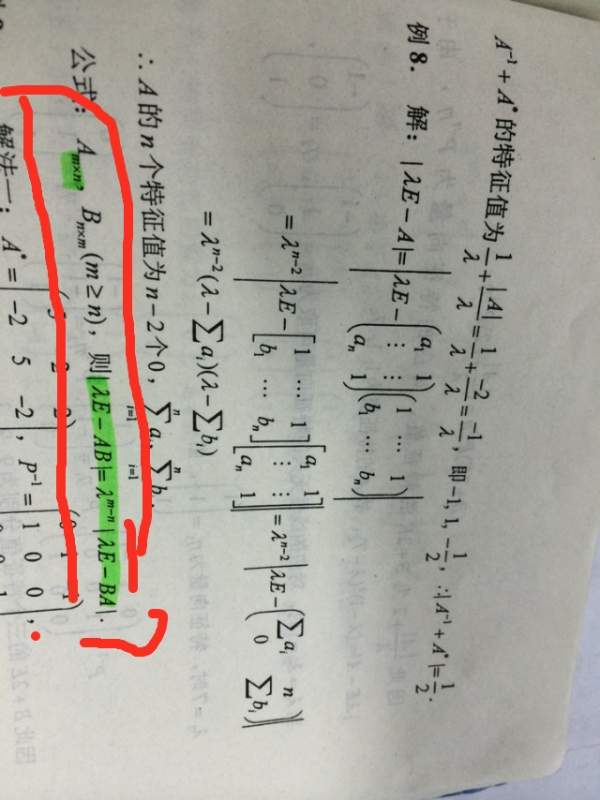 A⁻¹ + A* 的特征值为 1/λ + |A|/λ = 1/λ + -2/λ = -1/λ, 即 -1, 1, -1/2, ∴|A⁻¹ + A*| = 1/2.
例 8. 解: |λE - A| = |λE - (a₁ 1 ⋮ ⋮ aₙ 1)(1 … 1 b₁ … bₙ)|
= λⁿ⁻² |λE - [1 … 1 b₁ … bₙ][a₁ 1 ⋮ ⋮ aₙ 1]| = λⁿ⁻² |λE - (∑aᵢ n 0 ∑bᵢ)|
= λⁿ⁻²(λ - ∑aᵢ)(λ - ∑bᵢ)
∴ A 的 n 个特征值为 n - 2 个 0, ∑ⁿᵢ₌₁ aᵢ, ∑ⁿᵢ₌₁ b
公式: Aₘₓₙ, Bₙₓₘ (m ≥ n), 则|λE - AB| = λᵐ⁻ⁿ |λE - BA|.
解法一: A* = -2 5 -2, P⁻¹ = 1 0 0 ,